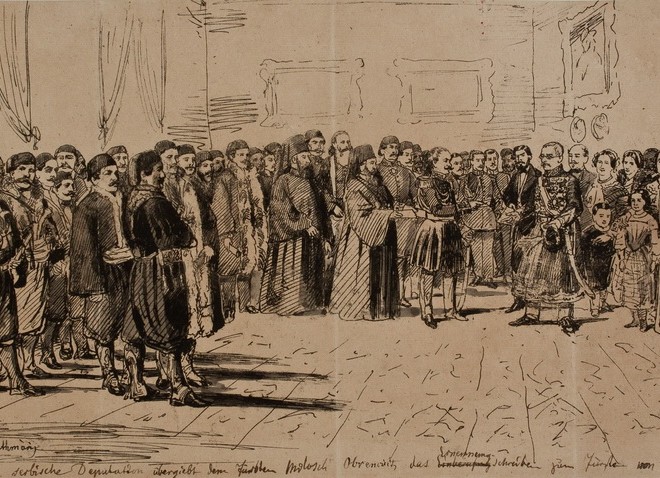 serbische Deputation übergiebt dem Fürsten Milosch Obrenovits das Ernennungsschreiben zum Fürsten von